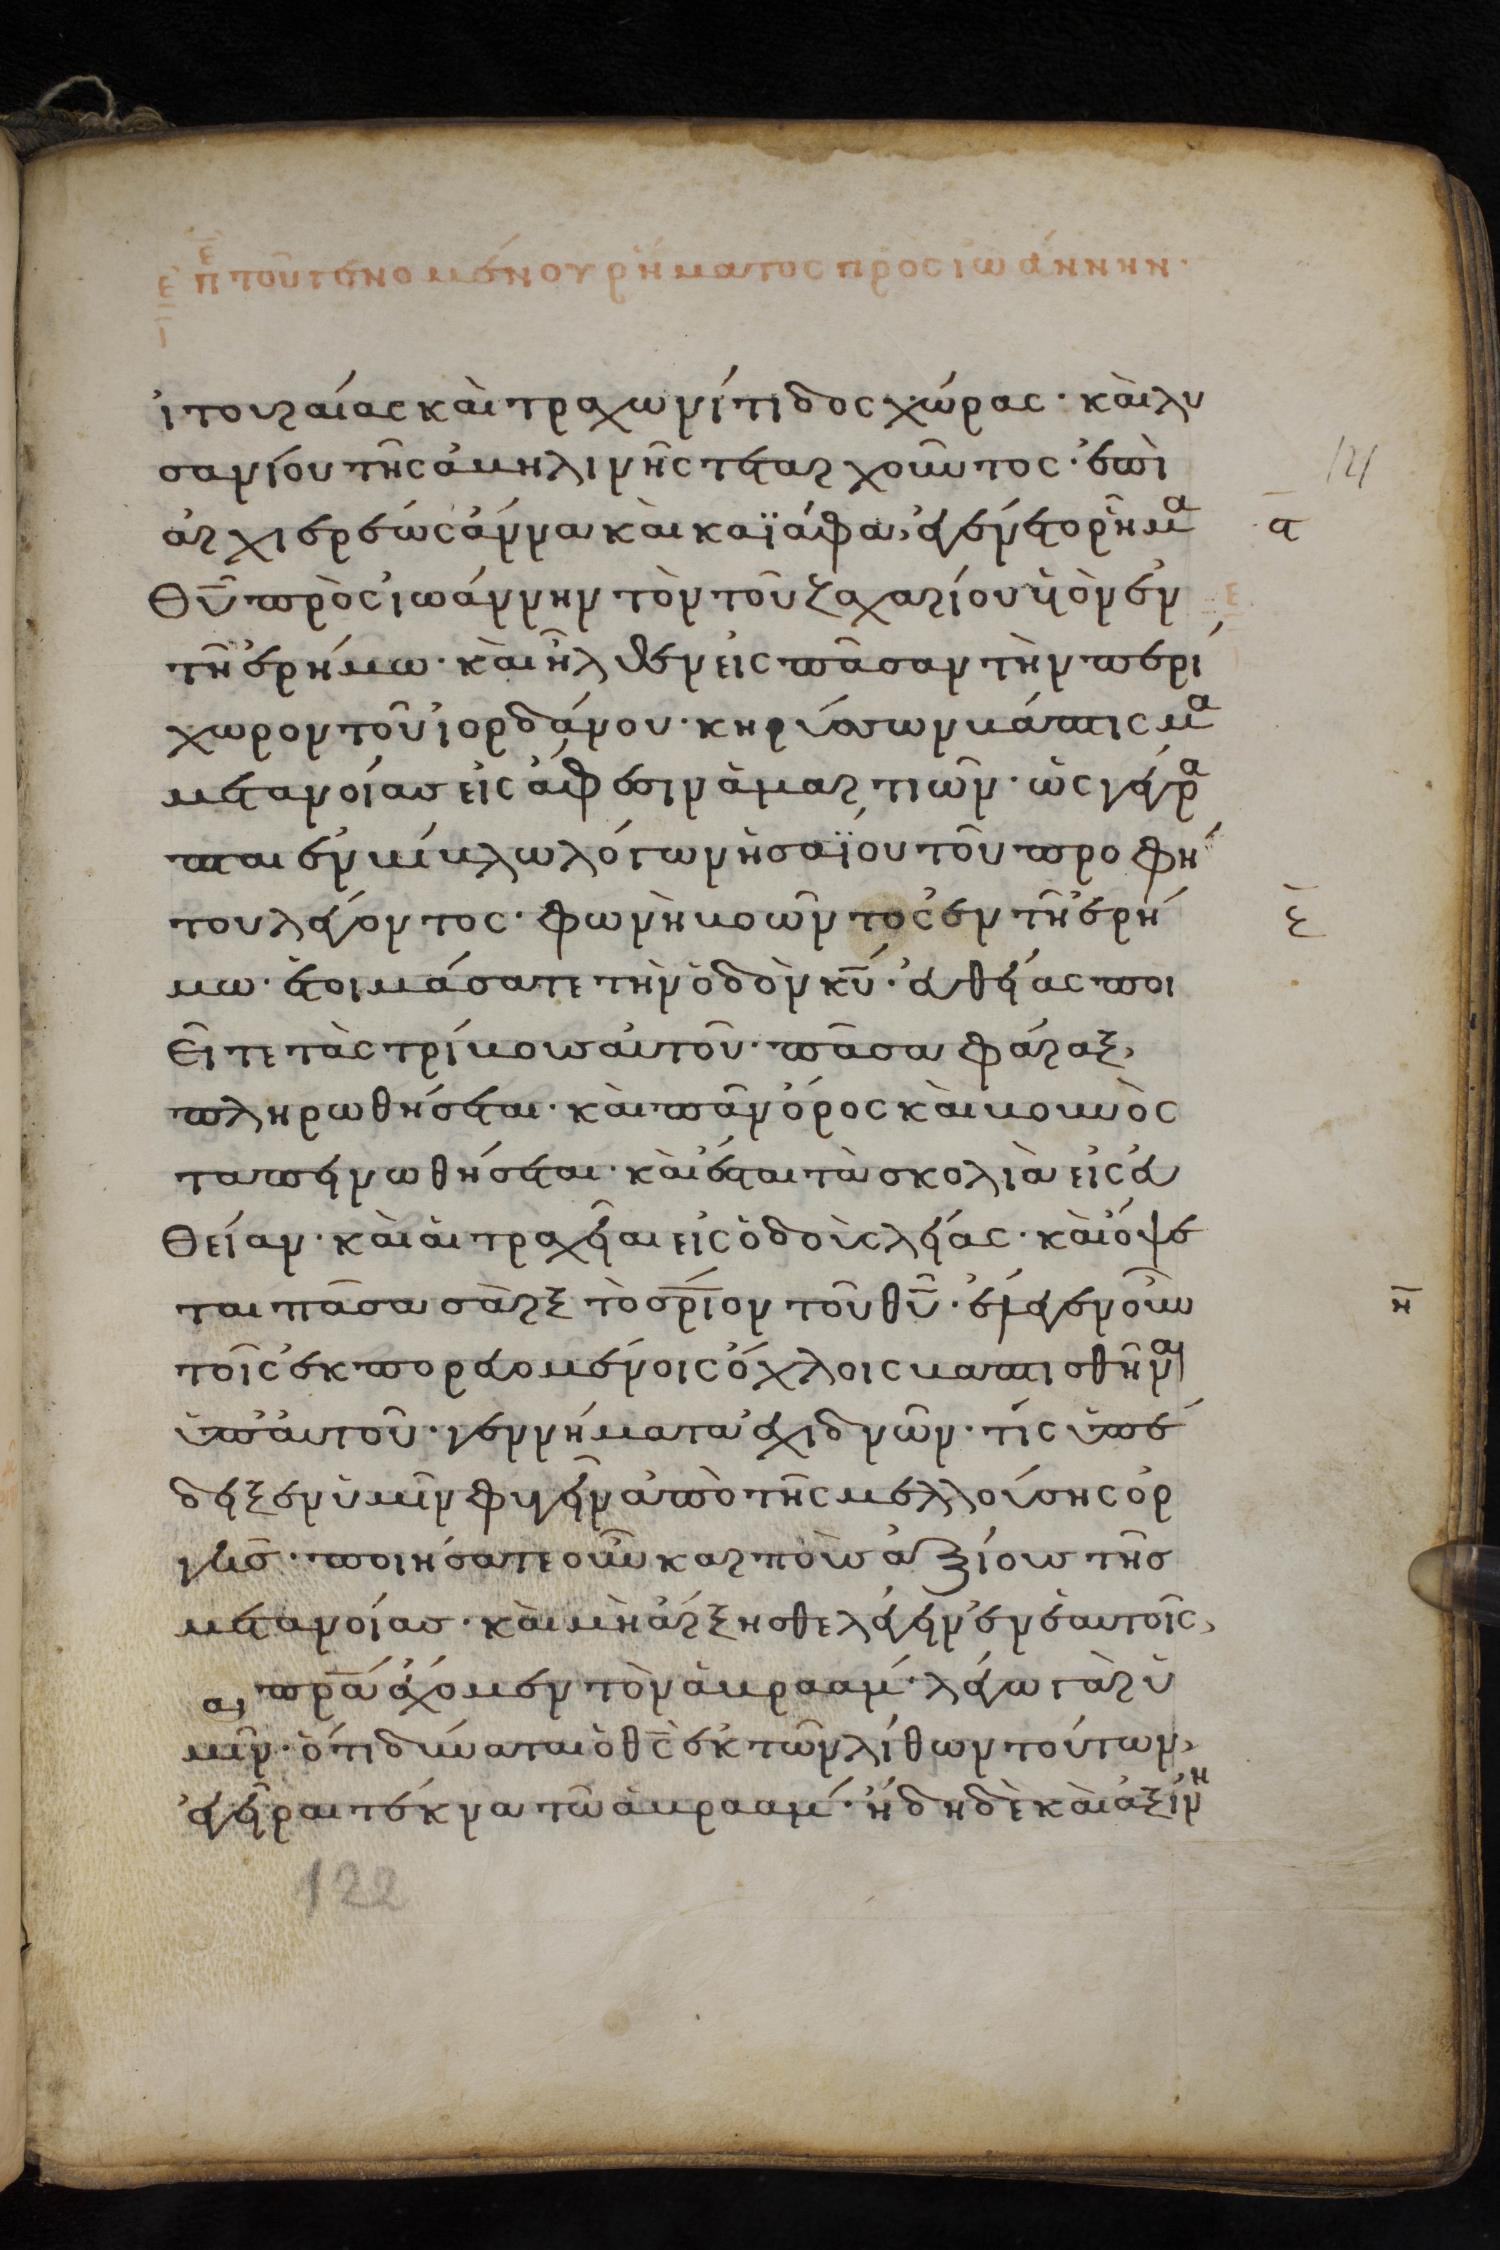 ε π̅ε̅ τοῦ γενομένου ῥήματος πρὸς ἰωάννην·
ι̅
121
ἰτουραίας καὶ τραχωνίτιδος χώρας· καὶ λυ
σανίου τῆς ἀμηλινῆς τετραρχοῦντος· ἐπὶ
ἀρχιερέως ἄννα καὶ καϊάφα, ἐγένετο ῥῆμα
α̅
θ̅υ̅ πρὸς ἰωάννην τὸν τοῦ ζαχαρίου υἱὸν ἐν
ε
τῇ ἐρήμω· καὶ ἦλθεν εἰς πᾶσαν τὴν περί
χωρον τοῦ ἰορδάνου· κηρύσσων βάπτισμα
μετανοίας εἰς ἄφεσιν ἁμαρτιῶν· ὡς γέγρα
πται ἐν βίβλω λόγων ἡσαΐου τοῦ προφή
του λέγοντος· φωνὴ βοῶντος ἐν τῇ ἐρή
ε̅
μω· ἑτοιμάσατε τὴν ὁδὸν κ̅υ̅· εὐθείας ποι
εῖτε τὰς τρίβους αὐτοῦ· πᾶσα φάραξ,
πληρωθήσεται· καὶ πᾶν ὄρος καὶ βουνὸς
ταπεινωθήσεται· καὶ ἔσται τὰ σκολιὰ εἰς εὐ
θείαν· καὶ αἱ τραχεῖαι εἰς ὁδοὺς λείας· καὶ ὄψε
ται πᾶσα σὰρξ τὸ σ̅ρ̅ι̅ον τοῦ θ̅υ̅· ἔλεγεν οὖν
η̅
τοῖς ἐκπορευομένοις ὄχλοις βαπτισθῆναι
ὑπ' αὐτοῦ· γεννήματα ἐχιδνῶν· τίς ὑπέ
δειξεν ὑμῖν φυγεῖν ἀπὸ τῆς μελλούσης ὀρ
γῆς· ποιήσατε οὖν καρποὺς ἀξίους τῆς
μετανοίας· καὶ μὴ ἄρξησθε λέγειν ἐν ἑαυτοῖς,
π̅ρ̅α̅ ἔχομεν τὸν ἀβραάμ· λέγω γὰρ ὑ
μῖν· ὅτι δύναται ὁ θ̅ς̅ ἐκ τῶν λίθων τούτων,
ἐγεῖραι τέκνα τῶ ἀβραάμ· ἤδη δὲ καὶ ἀξίνη
122